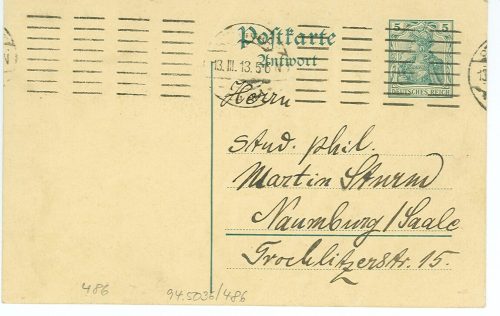 Postkarte
5 5
13.III.13.5
Antwort
DEUTSCHES REICH
Herrn
stud. phil.
Martin Sturm
Naumburg/Saale
Trochlitzerstr. 15.
486
94.5036/486